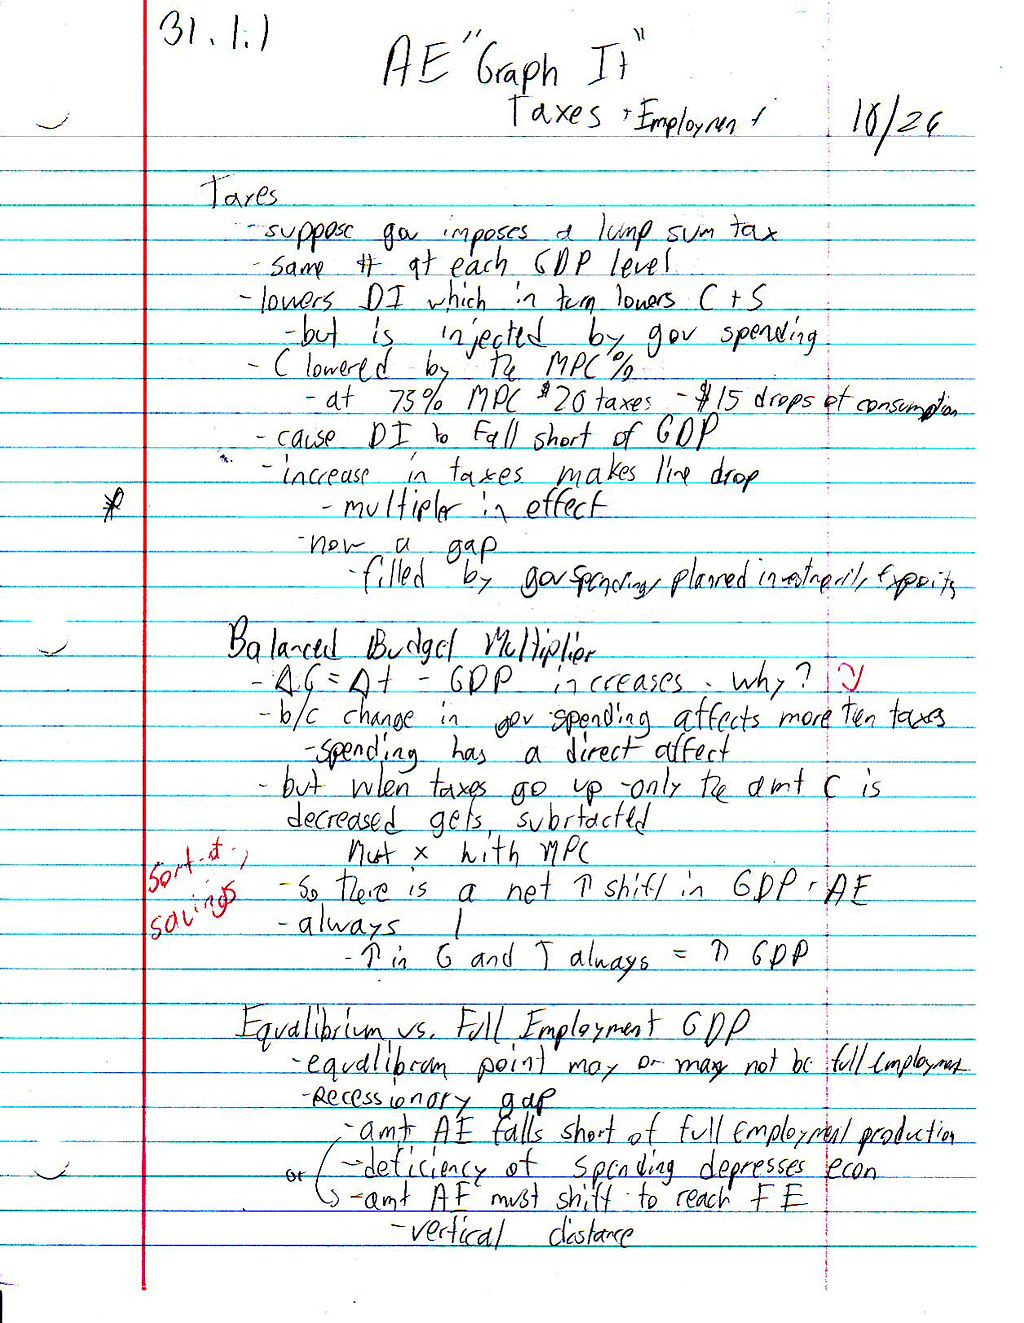 31.1.1
AE "Graph It"
Taxes + Employment
10/26
Taxes
- suppose gov imposes a lump sum tax
- same # at each GDP level
- lowers DI which in turn lowers C + S
- but is injected by gov spending
- C lowered by the MPC %
- at 75% MPC $20 taxes - $15 drops of consumption
- cause DI to fall short of GDP
- increase in taxes makes line drop
* - multipler in effect
- now a gap
- filled by gov spending, planned investment, exports
Balanced Budget Multiplier
- ΔG = Δt - GDP increases. why?
- b/c change in gov spending affects more then taxes
- spending has a direct affect
- but when taxes go up - only the amt C is
decreased gets subrtacted
Must x with MPC
Sort-a-
savings
- So there is a net ↑ shift in GDP + AE
- always 1
- ↑ in G and T always = ↑ GDP
Equalibrium vs. Full Employment GDP
- equalibrum point may or may not be full employment
- Recessionary gap
- amt AE falls short of full employment production
or - deficiency of spending depresses econ
- amt AE must shift to reach FE
- vertical distance